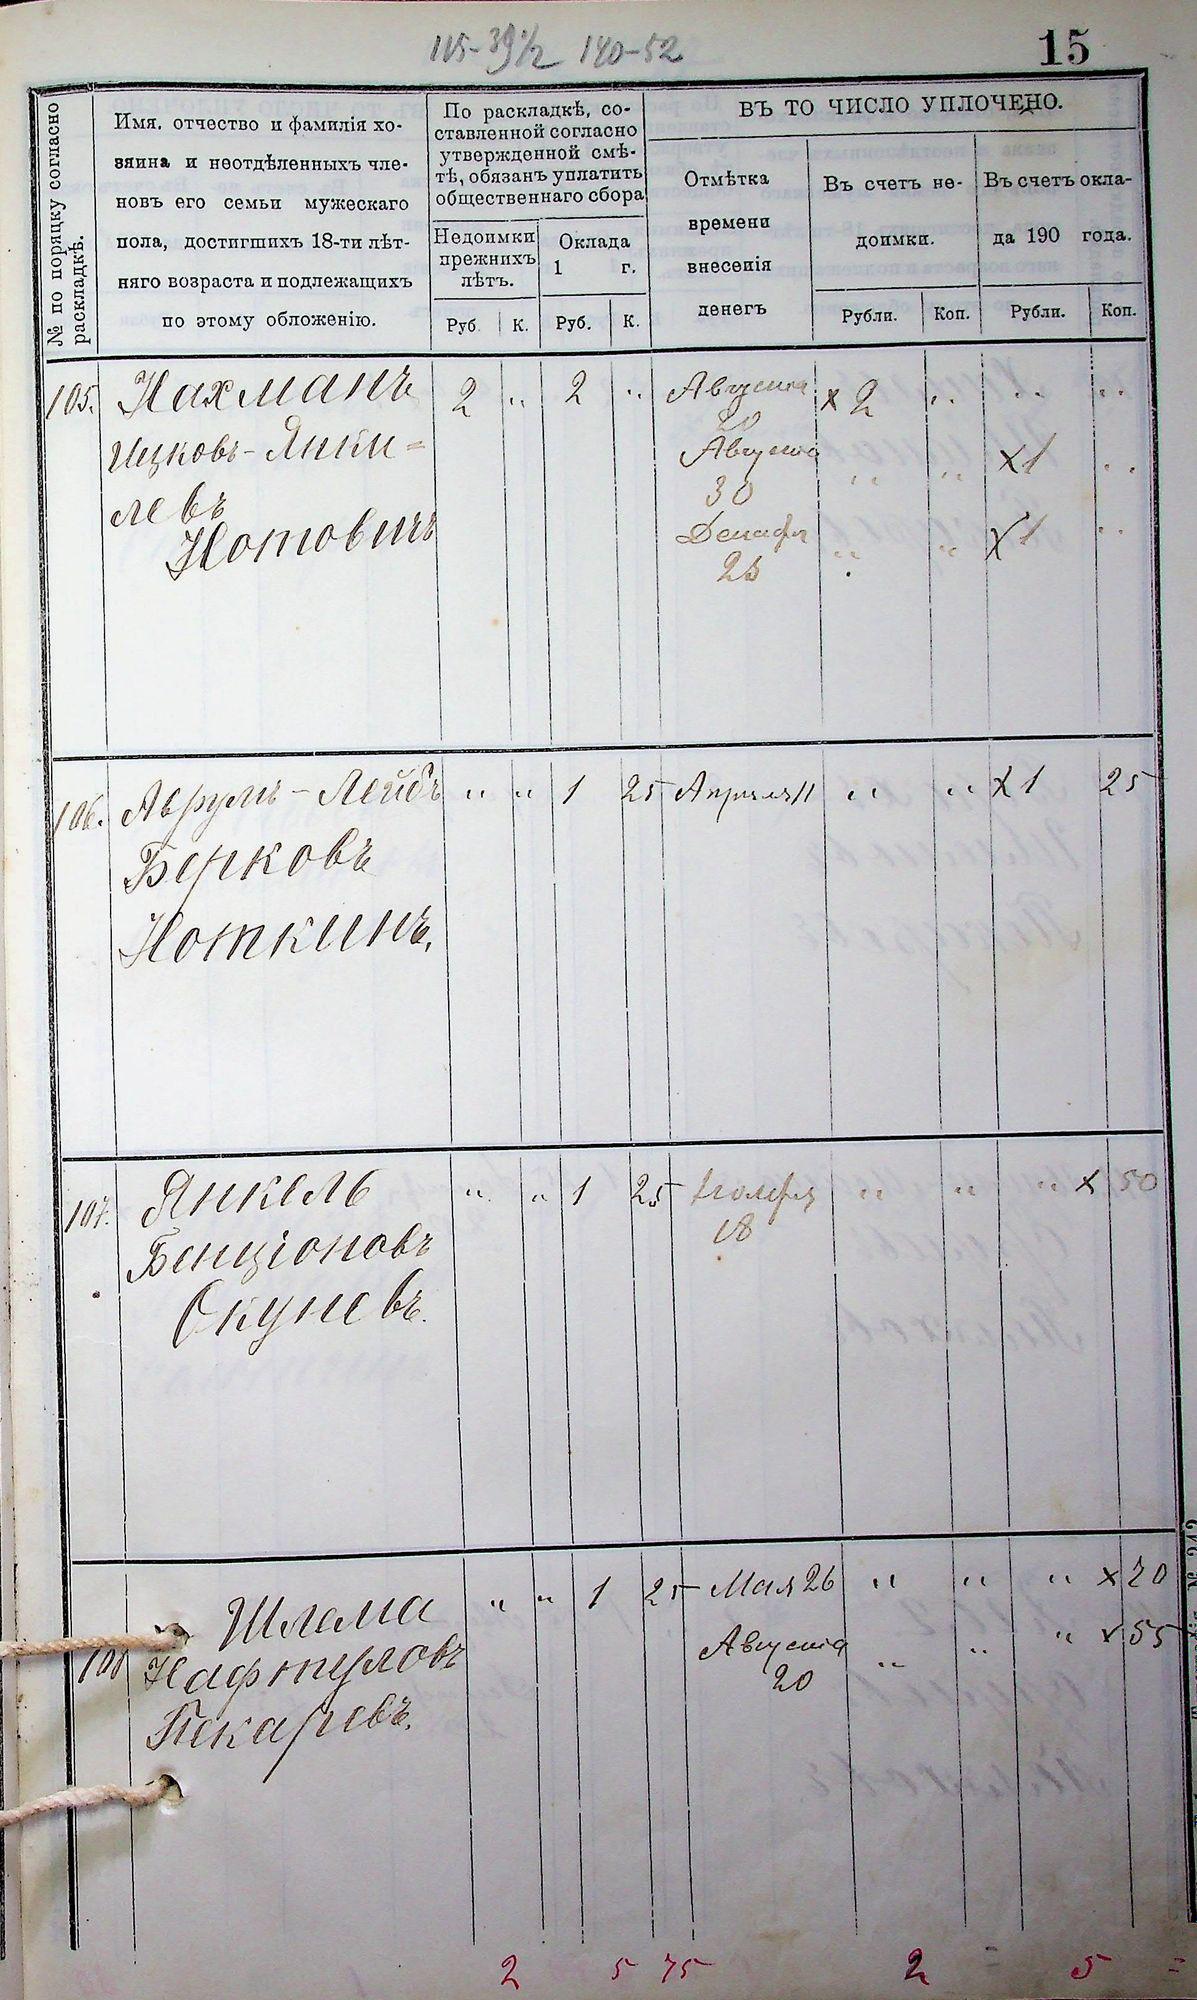 115-39½ 140-52
15
№ по порядку согласно раскладкѣ.
Имя, отчество и фамилія хо-
зяина и неотдѣленныхъ чле-
новъ его семьи мужескаго
пола, достигшихъ 18-ти лѣт-
няго возраста и подлежащихъ
по этому обложенію.
По раскладкѣ, со-
ставленной согласно
утвержденной смѣ-
тѣ, обязанъ уплатить
общественнаго сбора
Недоимки
прежнихъ
лѣтъ.
Оклада
1 г.
Руб. К. Руб. К.
ВЪ ТО ЧИСЛО УПЛОЧЕНО.
Отмѣтка
времени
внесенія
денегъ
Въ счетъ не-
доимки.
Въ счетъ окла-
да 190 года.
Рубли. Коп. Рубли. Коп.
105. Нахманъ 2 " 2 " Августа x 2 " " "
20
Ицковъ-Янки- Августа " " x1 "
30
левъ
Нотовичъ Декабря " " x1 "
25
106. Аврумъ-Лейбъ " " 1 25 Апреля 11 " " x1 25
Берковъ
Ноткинъ.
107. Янкель " " 1 25 Ноября " " " x 50
18
Бенціоновъ
Окуневъ.
108 Шлема " " 1 25 Мая 26 " " " x 70
Нафтуловъ Августа " " " x 55
20
Пекаревъ.
2 5 75 2 = 5 =